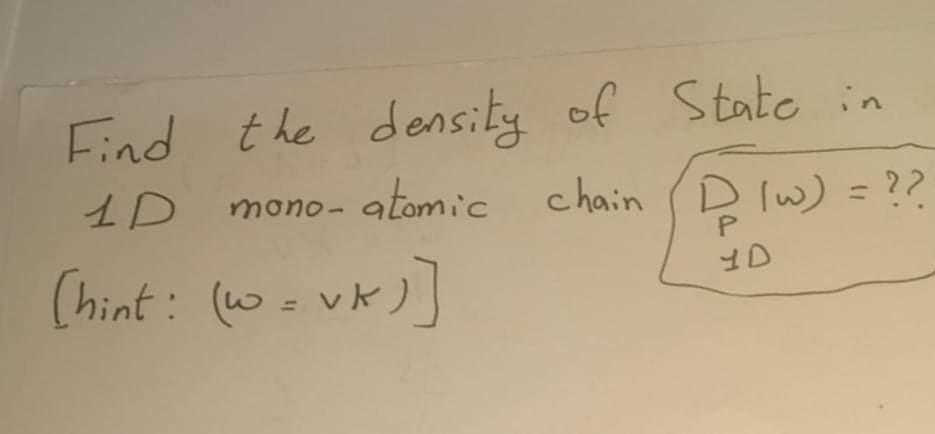 Find the density of State in
1D mono-atomic chain D (w) = ??
P
1D
[hint: (w = vk)]